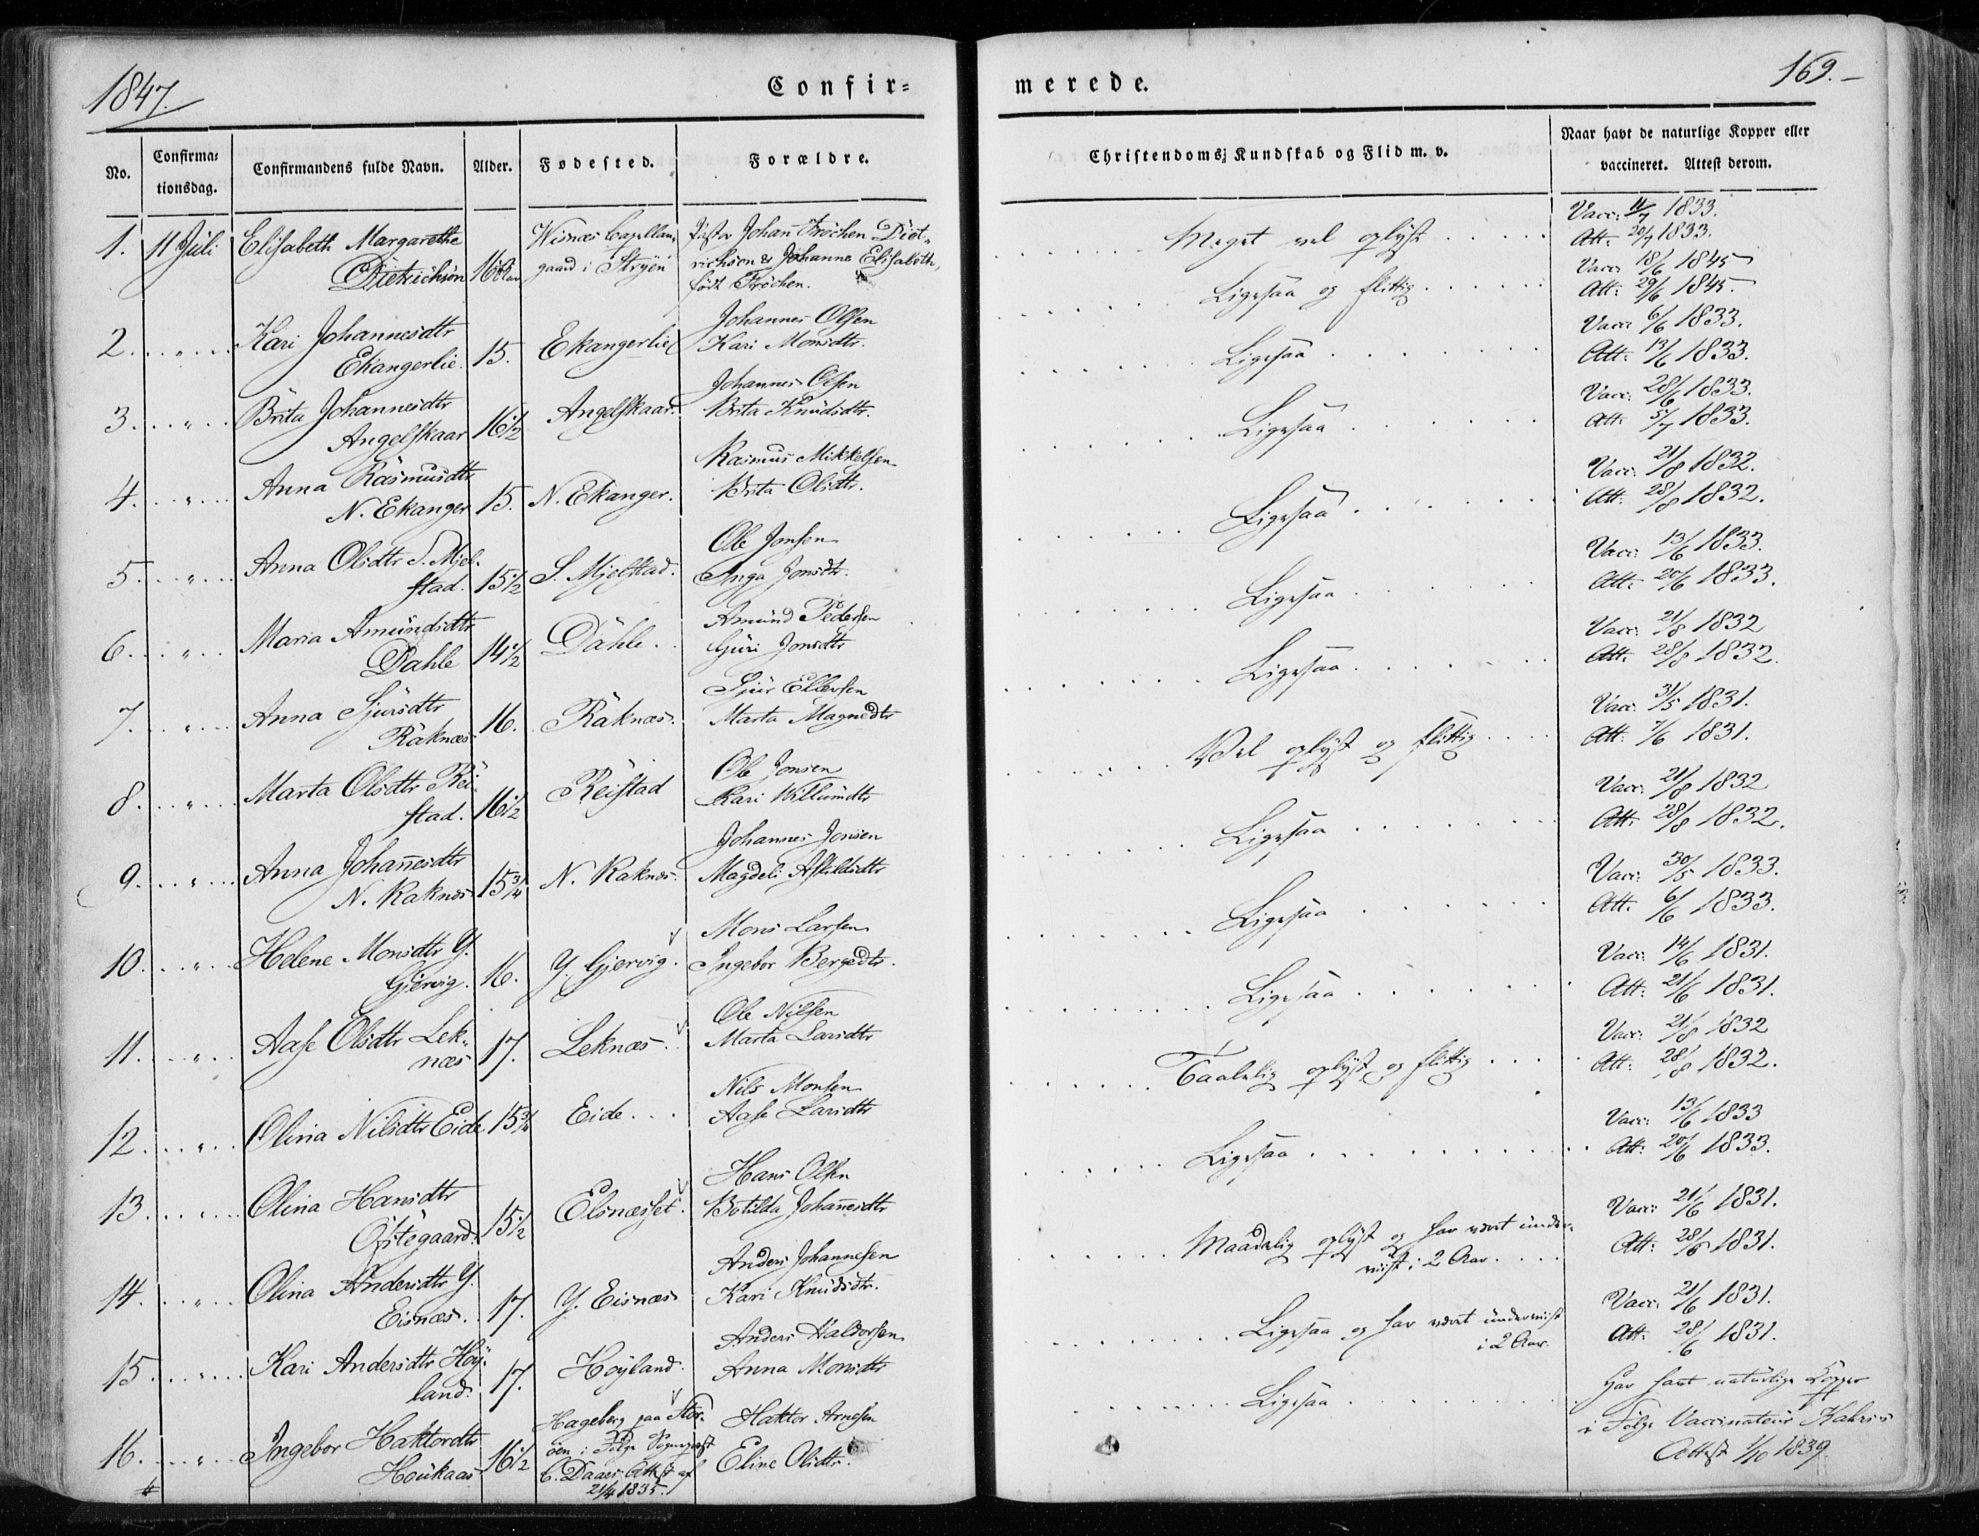 1847.
Confir=
merede.
169.
No.
Confirma=
tionsdag.
Confirmandens fulde Navn.
Alder.
Fødested.
Forældre.
Christendoms Kundskab og Flid m. v.
Naar havt de naturlige Kopper eller
vaccineret. Attest derom.
1. 11 Juli Elisabeth Margarethe
Dietrichson
Wisnæs Capellan-
gaard i Stryen
Johan Fröchen Diet-
richson & Johanne Elisabeth,
født Fröchen.
Meget vel oplyst
Vacc: 11/7 1833.
Att: 20/7 1833.
2. " Kari Johannesdtr
Ekangerlie. 15. Ekangerlie
Johannes Olsen
Kari Monsdtr.
Ligesaa og flittig
Vacc: 18/6 1845
Att: 29/6 1845
3. " Brita Johannesdtr
Angelskaar 16 1/2 Angelskaar.
Johannes Olsen
Brita Knudsdtr.
Ligesaa
Vacc: 6/6 1833.
Att: 13/6 1833.
4. " Anna Rasmusdtr
N. Ekanger 15. N. Ekanger.
Rasmus Mikkelsen
Brita Olsdtr.
Ligesaa
Vacc: 28/6 1833.
Att: 5/7 1833.
5. " Anna Olsdtr S. Mjel-
stad. 15 1/2 S. Mjelstad.
Ole Jonsen
Inga Jonsdtr.
Ligesaa
Vacc: 21/8 1832.
Att: 28/8 1832.
6. " Maria Amundsdtr
Dahle 14 1/2 Dahle.
Amund Pedersen
Guri Jonsdtr
Ligesaa
Vacc: 13/6 1833.
Att: 20/6 1833.
7. " Anna Sjursdtr
Raknæs 16. Raknæs.
Sjur Ellersen
Marta Magnedtr
Ligesaa
Vacc: 21/8 1832
Att. 28/8 1832.
8. " Marta Olsdtr Rei-
stad. 16 1/2 Reistad
Ole Jonsen
Kari Villumdtr
Vel oplyst og flittig
Vacc: 31/5 1831.
Att: 7/6 1831.
9. " Anna Johannesdtr
N. Raknæs 15 3/4 N. Raknæs.
Johannes Jonsen
Magdeli Askildsdtr
Ligesaa
Vacc: 21/8 1832
Att: 28/8 1832.
10. " Helene Monsdtr Y.
Gjervig. 16. Y. Gjervig.
Mons Larsen
Ingebor Bergedtr.
Ligesaa
Vacc: 30/5 1833.
Att. 6/6 1833.
11. " Aase Olsdtr Lek-
næs 17. Leknæs.
Ole Nilsen
Marta Larsdtr
Ligesaa
Vacc: 14/6 1831.
Att: 21/6 1831.
12. " Olina Nilsdtr Eide 15 3/4 Eide.
Nils Monsen
Aase Larsdtr
Taalelig oplyst og flittig
Vacc: 21/8 1832
Att: 28/8 1832.
13. " Olina Hansdtr
Østegaard. 15 1/2 Elsnæsset.
Hans Olsen
Botilda Johannesdtr
Ligesaa
Vacc: 13/6 1833
Att: 20/6 1833.
14. " Olina Andersdtr Y.
Eisnæs. 17. Y. Eisnæs
Anders Johannesen
Kari Knudsdtr.
Maadelig oplyst og har været under-
vist i 2 Aar.
Vacc: 21/6 1831.
Att: 28/6 1831.
15. " Kari Andersdtr Høy-
land. 17. Høyland.
Anders Haldorsen
Anna Monsdtr
Ligesaa og har været undervist
i 2 Aar.
Vacc: 21/6 1831.
Att: 28/6 1831.
16. " Ingebor Haktordtr
Houkaas 16 1/2
Hageberg paa Stor-
öen i Følge Sognepræst
C. Daaes Attest af
21/4 1835.
Haktor Arnesen
Eline Olsdtr.
Ligesaa
Har havt naturlige Kopper
i Følge Vaccinateur Kahrs's
Attest 1/10 1839.